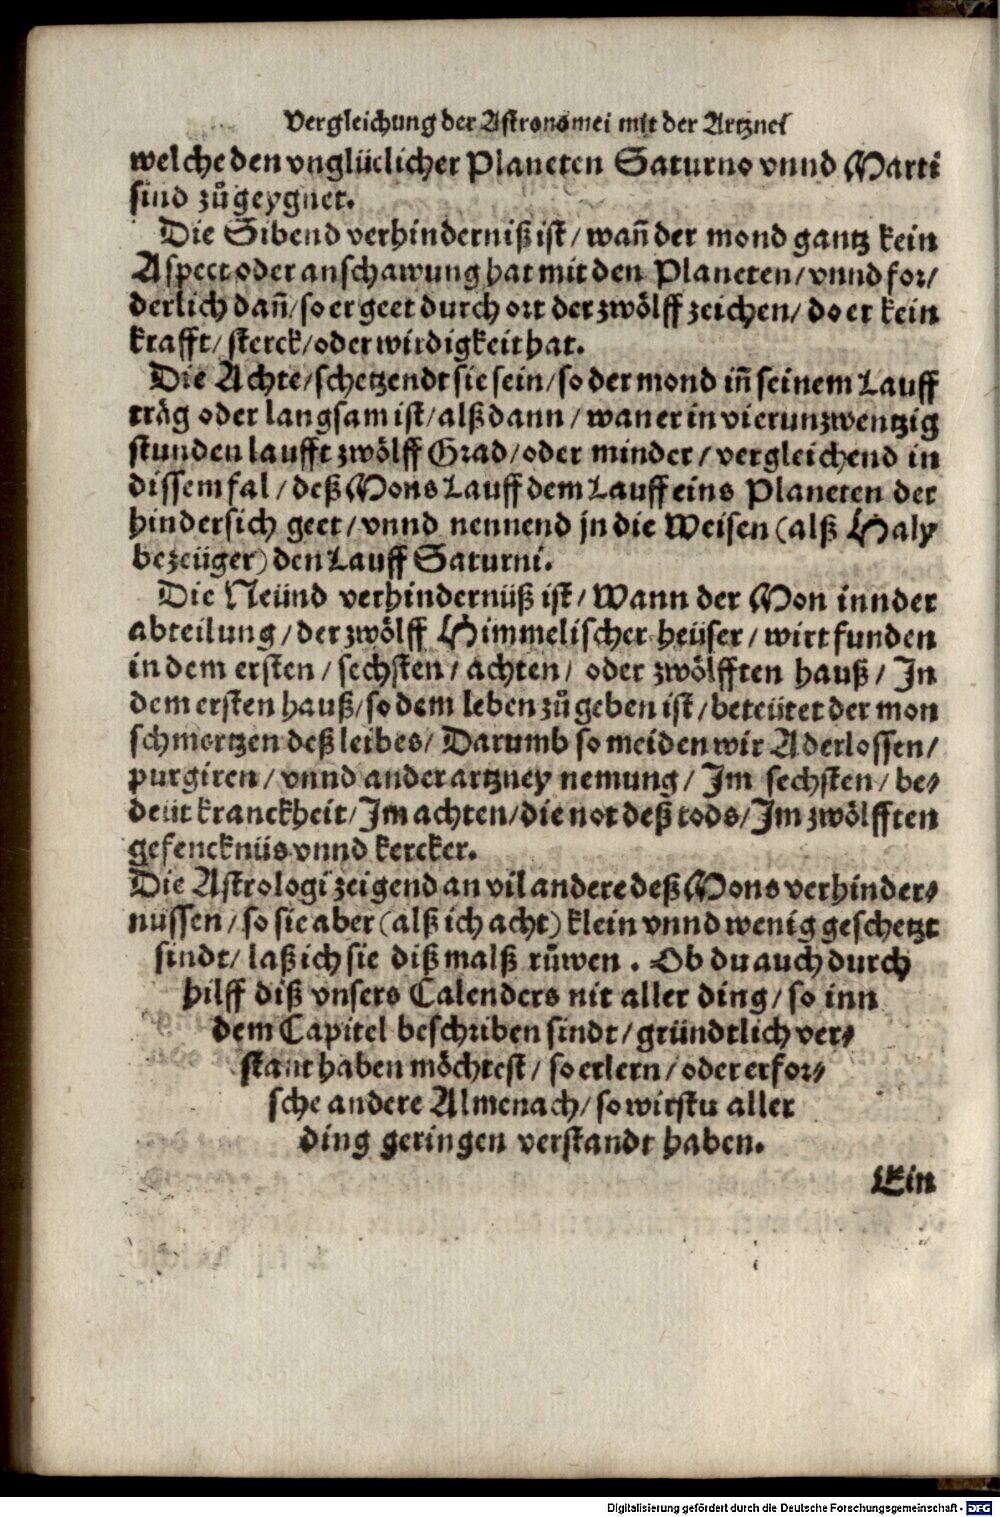 Vergleichung der Astronomei mit der Artznei
welche den vnglüclicher Planeten Saturno vnnd Marti
sind zůgeygnet.
Die Sibend verhinderniß ist / wañ der mond gantz kein
Aspect oder anschawung hat mit den Planeten / vnnd for/
derlich dañ / so er geet durch ort der zwölff zeichen / do er kein
krafft / sterck / oder wirdigkeit hat.
Die Achte / schetzendt sie sein / so der mond iñ seinem Lauff
träg oder langsam ist / alß dann / wan er in vierunzwentzig
stunden laufft zwölff Grad / oder minder / vergleichend in
dissem fal / deß Mons Lauff dem Lauff eins Planeten der
hindersich geet / vnnd nennend jn die Weisen (alß Haly
bezeüger) den Lauff Saturni.
Die Neünd verhindernüß ist / Wann der Mon inn der
abteilung / der zwölff Himmelischer heüser / wirt funden
in dem ersten / sechsten / achten / oder zwölfften hauß / In
dem ersten hauß / so dem leben zů geben ist / beteütet der mon
schmertzen deß leibes / Darumb so meiden wir Aderlossen /
purgiren / vnnd ander artzney nemung / Im sechsten / be/
deüt kranckheit / Im achten / die not deß tods / Im zwölfften
gefencknüs vnnd kercker.
Die Astrologi zeigend an vil andere deß Mons verhinder/
nussen / so sie aber (alß ich acht) klein vnnd wenig geschetzt
sindt / laß ich sie diß malß růwen . Ob du auch durch
hilff diß vnsers Calenders nit aller ding / so inn
dem Capitel beschriben sindt / gründtlich ver/
stant haben möchtest / so erlern / oder erfor/
sche andere Almenach / so wirstu aller
ding geringen verstandt haben.
Ein
Digitalisierung gefördert durch die Deutsche Forschungsgemeinschaft - DFG